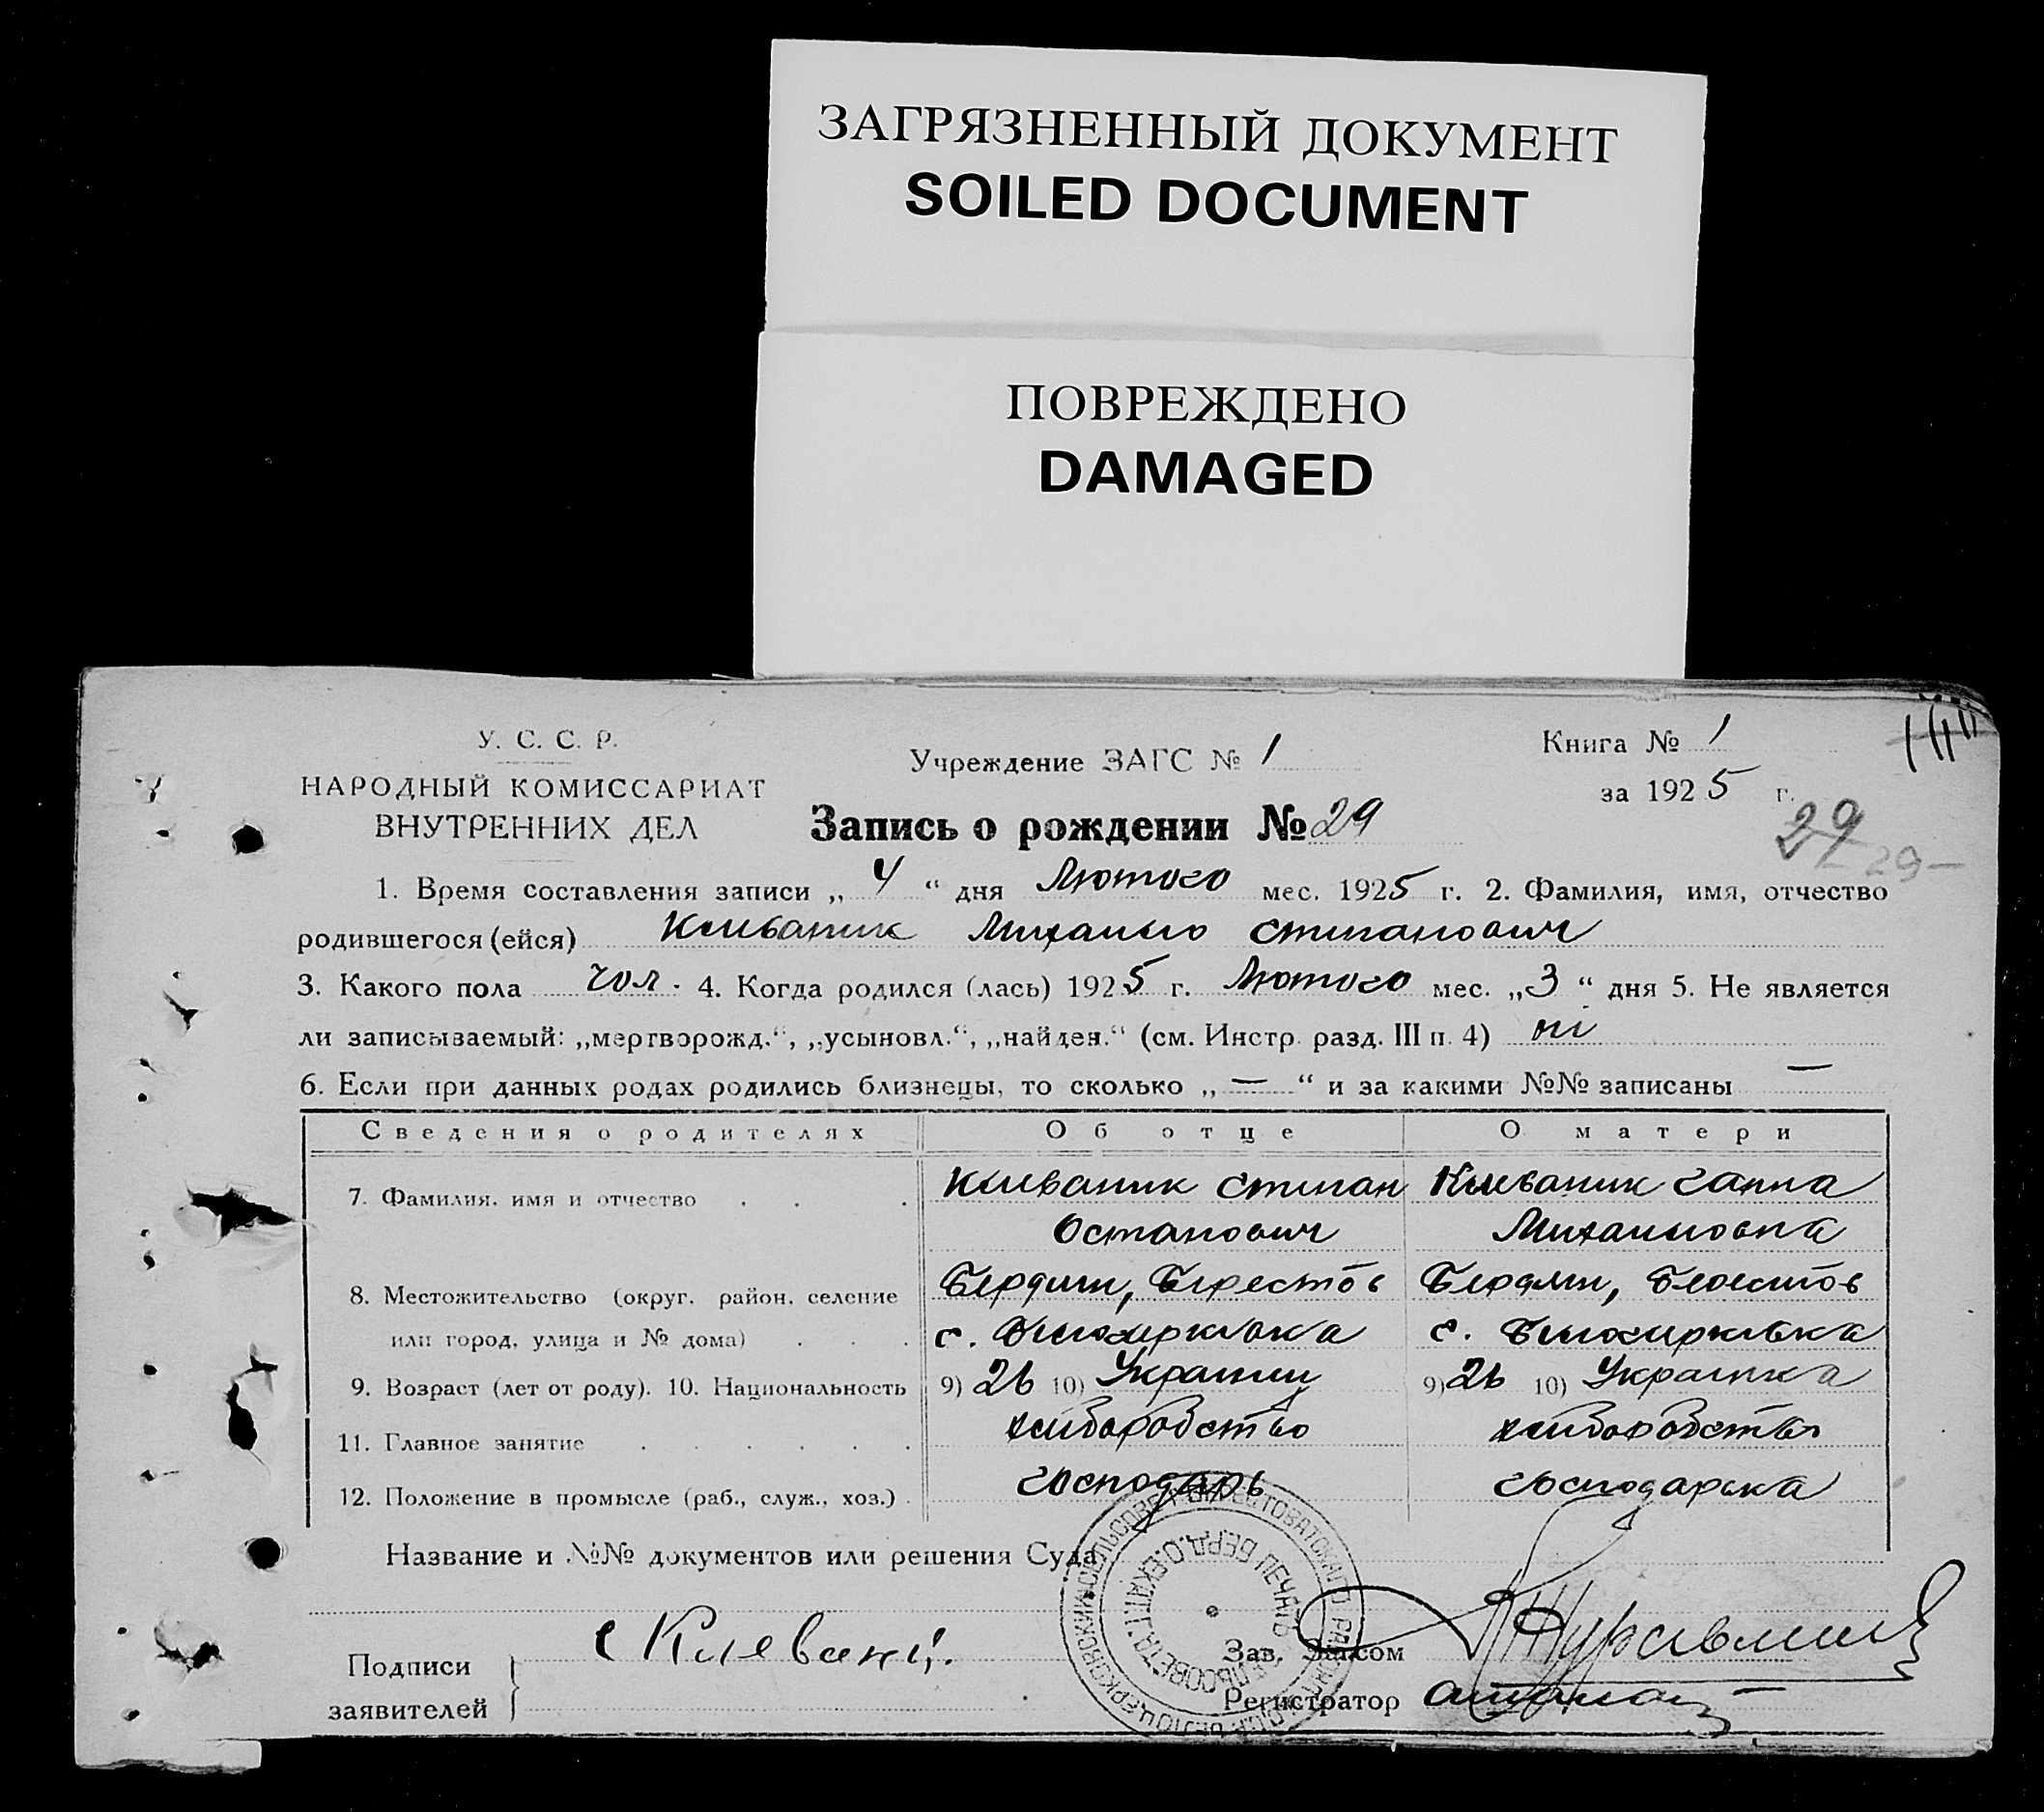 ЗАГРЯЗНЕННЫЙ ДОКУМЕНТ
SOILED DOCUMENT
ПОВРЕЖДЕНО
DAMAGED
У. С. С. Р.
НАРОДНЫЙ КОМИССАРИАТ
ВНУТРЕННИХ ДЕЛ
Учреждение ЗАГС № 1
Книга № 1
за 1925 г.
Запись о рождении № 29
29
29 –
1. Время составления записи „ 4 “ дня Лютого мес. 1925 г. 2. Фамилия, имя, отчество
родившегося (ейся) Клеваник Михаило Степанович
3. Какого пола чол. 4. Когда родился (лась) 1925 г. Лютого мес. „3“ дня 5. Не является
ли записываемый: „мертворожд.“, „усыновл.“, „найден.“ (см. Инстр. разд. III п. 4) ні
6. Если при данных родах родились близнецы, то сколько „ — “ и за какими №№ записаны —
Сведения о родителях Об отце О матери
7. Фамилия, имя и отчество . . . Клеваник Степан Клеваник Ганна
Остапович Михаиловна
8. Местожительство (округ, район, селение Бердян, Берестов Бердян, Берестов
или город, улица и № дома) . . . с. Билоцерківка с. Билоцерківка
9. Возраст (лет от роду). 10. Национальность 9) 26 10) Украинец 9) 26 10) Украинка
11. Главное занятие . . . . . . хлиборобство хлиборобство
12. Положение в промысле (раб., служ., хоз.) . господарь господарка
Название и №№ документов или решения Суда
Подписи
заявителей
Зав. Загсом
Регистратор